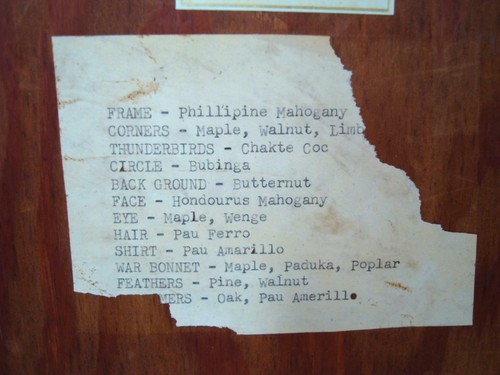 FRAME - Phillipine Mahogany
CORNERS - Maple, Walnut, Limb
THUNDERBIRDS - Chakte Coc
CIRCLE - Bubinga
BACK GROUND - Butternut
FACE - Hondourus Mahogany
EYE - Maple, Wenge
HAIR - Pau Ferro
SHIRT - Pau Amarillo
WAR BONNET - Maple, Paduka, Poplar
FEATHERS - Pine, Walnut
MERS - Oak, Pau Amerillo